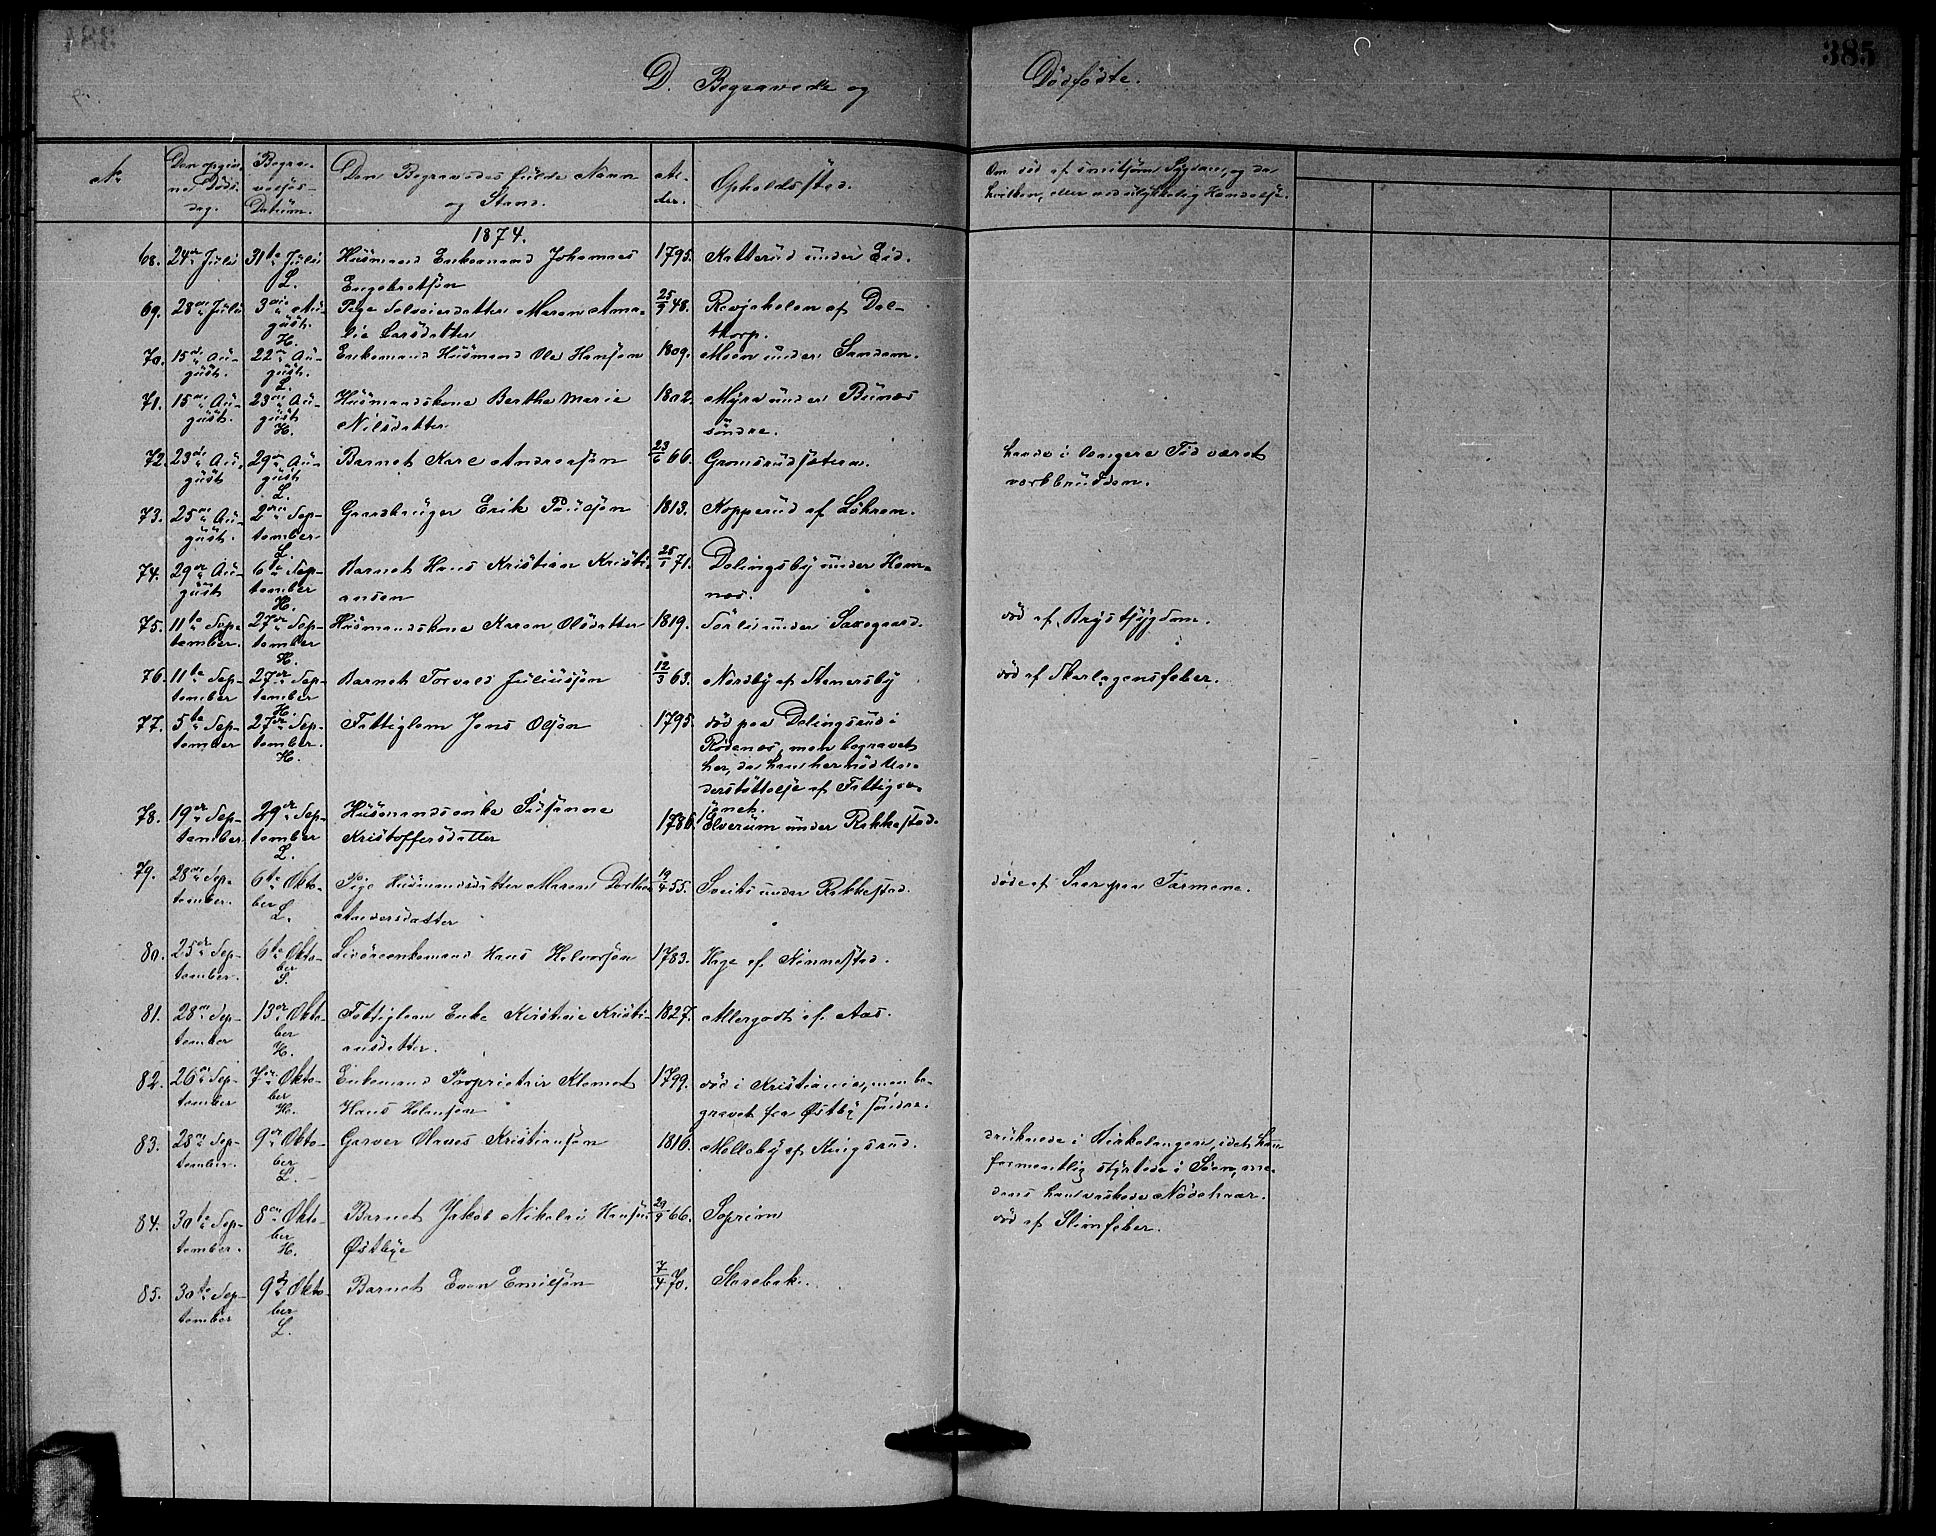 385
D. Begravede og Dødfødte.
No
Den opgivne Dødsdag.
Begravelses-Datum.
Den Begravedes fulde Navn og Stand.
Alder.
Opholdssted.
Om død af smitsom Sygdom, og da hvilken, eller ved ulykkelig Hændelse.
1874.
68. 24de Juli 31te Juli L. Husmand Enkemand Johannes Engebretsøn 1795. Katterud under Eid.
69. 28de Juli 3die August. H. Pige Selveierdatter Maren Amalie Larsdatter 25/9 48. Revjeholen af Dalthorp.
70. 15de August. 22de August. L. Enkemand Husmand Ole Hansøn 1809. Moen under Sandem.
71. 15de August. 23de August H. Husmandskone Berthe Marie Nilsdatter 1802. Myra under Bunæs søndre.
72. 23de August 29de August L. Barnet Karl Andreasøn 23/6 66. Gromsrudsæteren. havde i længere Tid været værkbrudden.
73. 25de August. 2den September L. Gaardbruger Erik Poulsøn 1813. Kopperud af Løkren.
74. 29de August 6te September H. Barnet Hans Kristian Kristiansen 25/1 71. Dalingsby under Hemnæs.
75. 11te September. 27de September H. Husmandskone Karen Olsdatter 1819. Sørli under Saxegaard. død af Brystsygdom.
76. 11te September 27de September H. Barnet Torvald Juliussøn 12/3 63. Nordby af Stenersby død af Skarlagensfeber.
77. 5te September 27de September. H. Fattiglem Jens Olsøn 1795. død paa Dalingsrud i Rødenæs, men begravet her, da han her nød Understøttelse af Fattigvæsenet.
78. 19de September 29de September L. Husmandsenke Susanne Kristoffersdatter 1786. Elverum under Rakkestad.
79. 28de September. 6te Oktober L. Pige Husmandsdatter Maren Dorthea Andersdatter 19/4 55. Sveits under Rakkestad. døde af Saar paa Tarmene.
80. 25de September. 6te Oktober S. Livøreenkemand Hans Halvorsøn 1783. Hage af Nennestad.
81. 28de September 13de Oktober H. Fattiglem Enke Kirstine Kristiansdatter. 1827. Allergodt af Aas.
82. 26de September 7de Oktober H. Enkemand Proprietær Klemet Hans Holmsøn 1799. død i Kristiania, men begravet fra Østby søndre.
83. 28de September. 9de Oktober L. Garver Olaves Kristiansøn 1816. Mølleby af Krogsrud. druknede i Birkelangen, idet han formentlig styrtede i Søen, medens han vaskede Nødehaar.
84. 30te September. 8de Oktober H. Barnet Jakob Nikolai Hansøn Østbye 29/9 66. Soprim død af Slimfeber.
85. 30te September 9de Oktober L. Barnet Even Emilsøn 7/4 70. Skarebak.